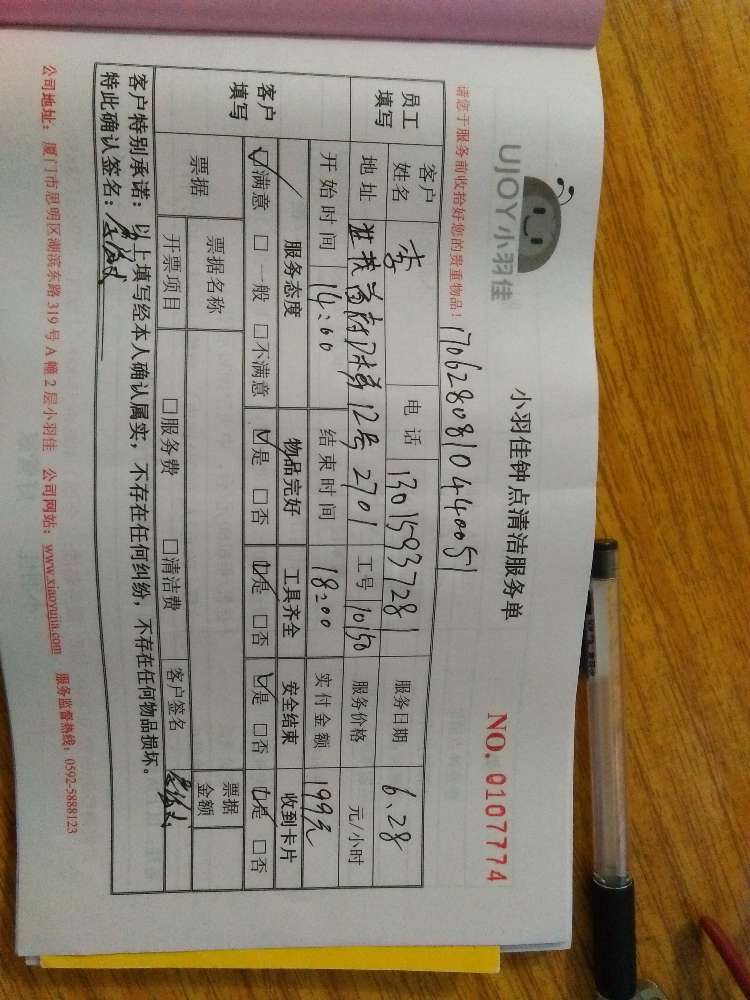 UJOY小羽佳
小羽佳钟点清洁服务单
NO. 0107774
请您于服务前收拾好您的贵重物品！
1706280810440051
员工填写 客户姓名 李 电话 13015937281 服务日期 6.28
地址 12号2701 工号 1050 服务价格 元/小时
开始时间 14:00 结束时间 18:00 实付金额 199元
客户填写 服务态度 物品完好 工具齐全 安全结束 收到卡片
☑满意 □一般 □不满意 ☑是 □否 ☑是 □否 ☑是 □否 ☑是 □否
票据 票据名称 票据金额
开票项目 □服务费 □清洁费 客户签名
客户特别承诺：以上填写经本人确认属实，不存在任何纠纷，不存在任何物品损坏。
特此确认签名：
公司地址：厦门市思明区湖滨东路319号A幢2层小羽佳 公司网站：www.xiaoyujia.com 服务监督热线：0592-5888123